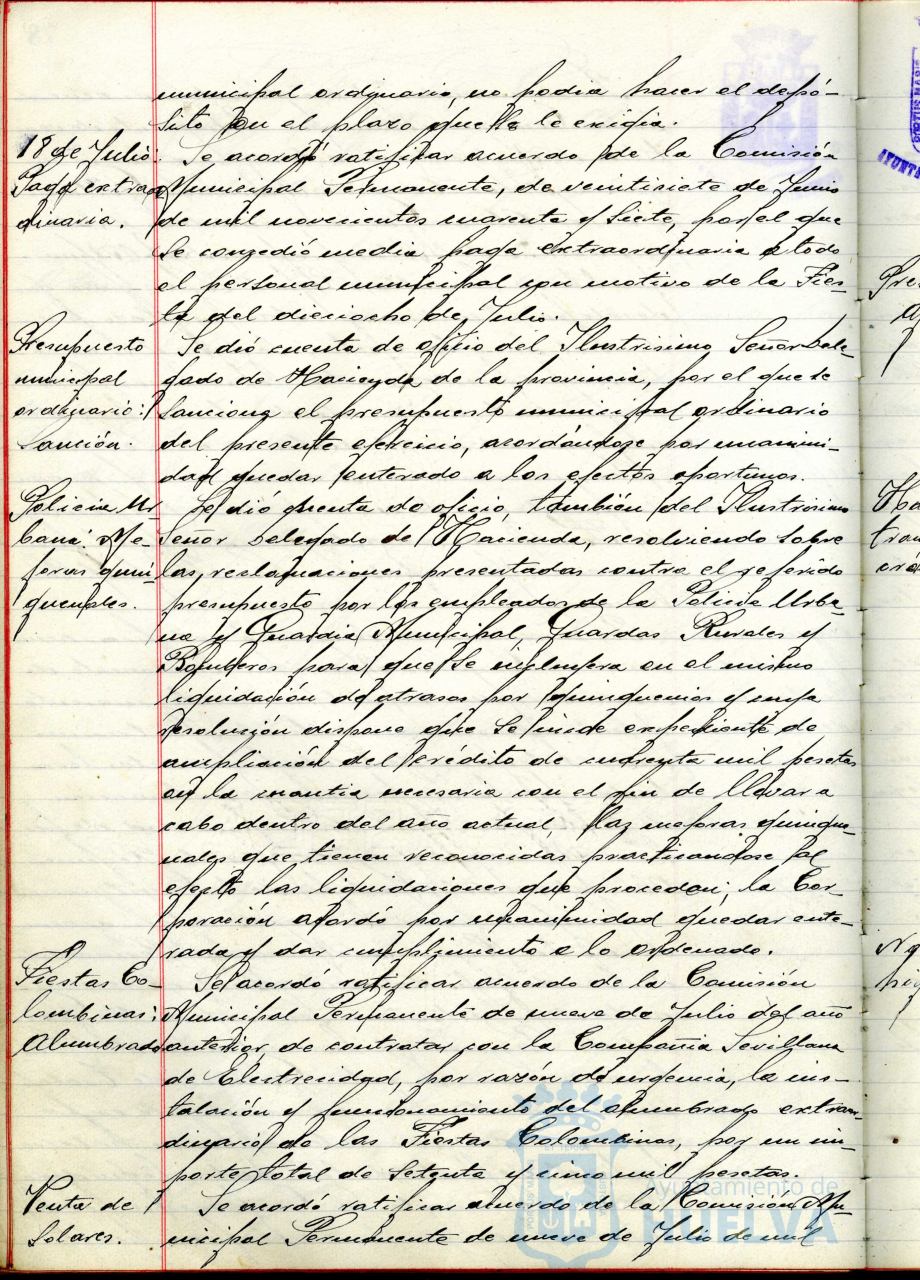 municipal ordinario, no podia hacer el depó-
sito en el plazo que se le exigia.
18 de Julio:
Paga extraor
dinaria.
Se acordó ratificar acuerdo de la Comisión
Municipal Permanente, de veintisiete de Junio
de mil novecientos cuarenta y siete, por el que
se concedió media paga extraordinaria a todo
el personal municipal con motivo de la Fies-
ta del dieciocho de Julio.
Presupuesto
municipal
ordinario:
Sanción.
Se dió cuenta de oficio del Ilustrisimo Señor Dele-
gado de Hacienda de la provincia, por el que se
sanciona el presupuesto municipal ordinario
del presente ejercicio, acordándose por unanimi-
dad quedar enterado a los efectos oportunos.
Policia Ur-
bana: Me-
joras quin-
quenales.
Se dió cuenta de oficio, también del Ilustrisimo
Señor Delegado de Hacienda, resolviendo sobre
las reclamaciones presentadas contra el referido
presupuesto por los empleados de la Policia Urba-
na y Guardia Municipal, Guardas Rurales y
Bomberos para que se incluyera en el mismo
liquidación de atrasos por quinquenios y cuya
resolución dispone que se inicie expediente de
ampliación del crédito de cuarenta mil pesetas
en la cuantia necesaria con el fin de llevar a
cabo dentro del año actual, las mejoras quinque-
nales que tienen reconocidas practicandose al
efecto las liquidaciones que procedan; la Cor-
poración acordó por unanimidad quedar ente-
rada y dar cumplimiento a lo ordenado.
Fiestas Co-
lombinas:
Alumbrado
Se acordó ratificar acuerdo de la Comisión
Municipal Permanente de nueve de Julio del año
anterior, de contratar con la Compañia Sevillana
de Electrecidad, por razón de urgencia, la ins-
talación y funcionamiento del alumbrado extraor
dinario de las Fiestas Colombinas, por un im
porte total de setenta y cinco mil pesetas.
Venta de
Solares.
Se acordó ratificar acuerdo de la Comisión Mu-
nicipal Permanente de nueve de Julio de mil
Ayuntamiento de
HUELVA